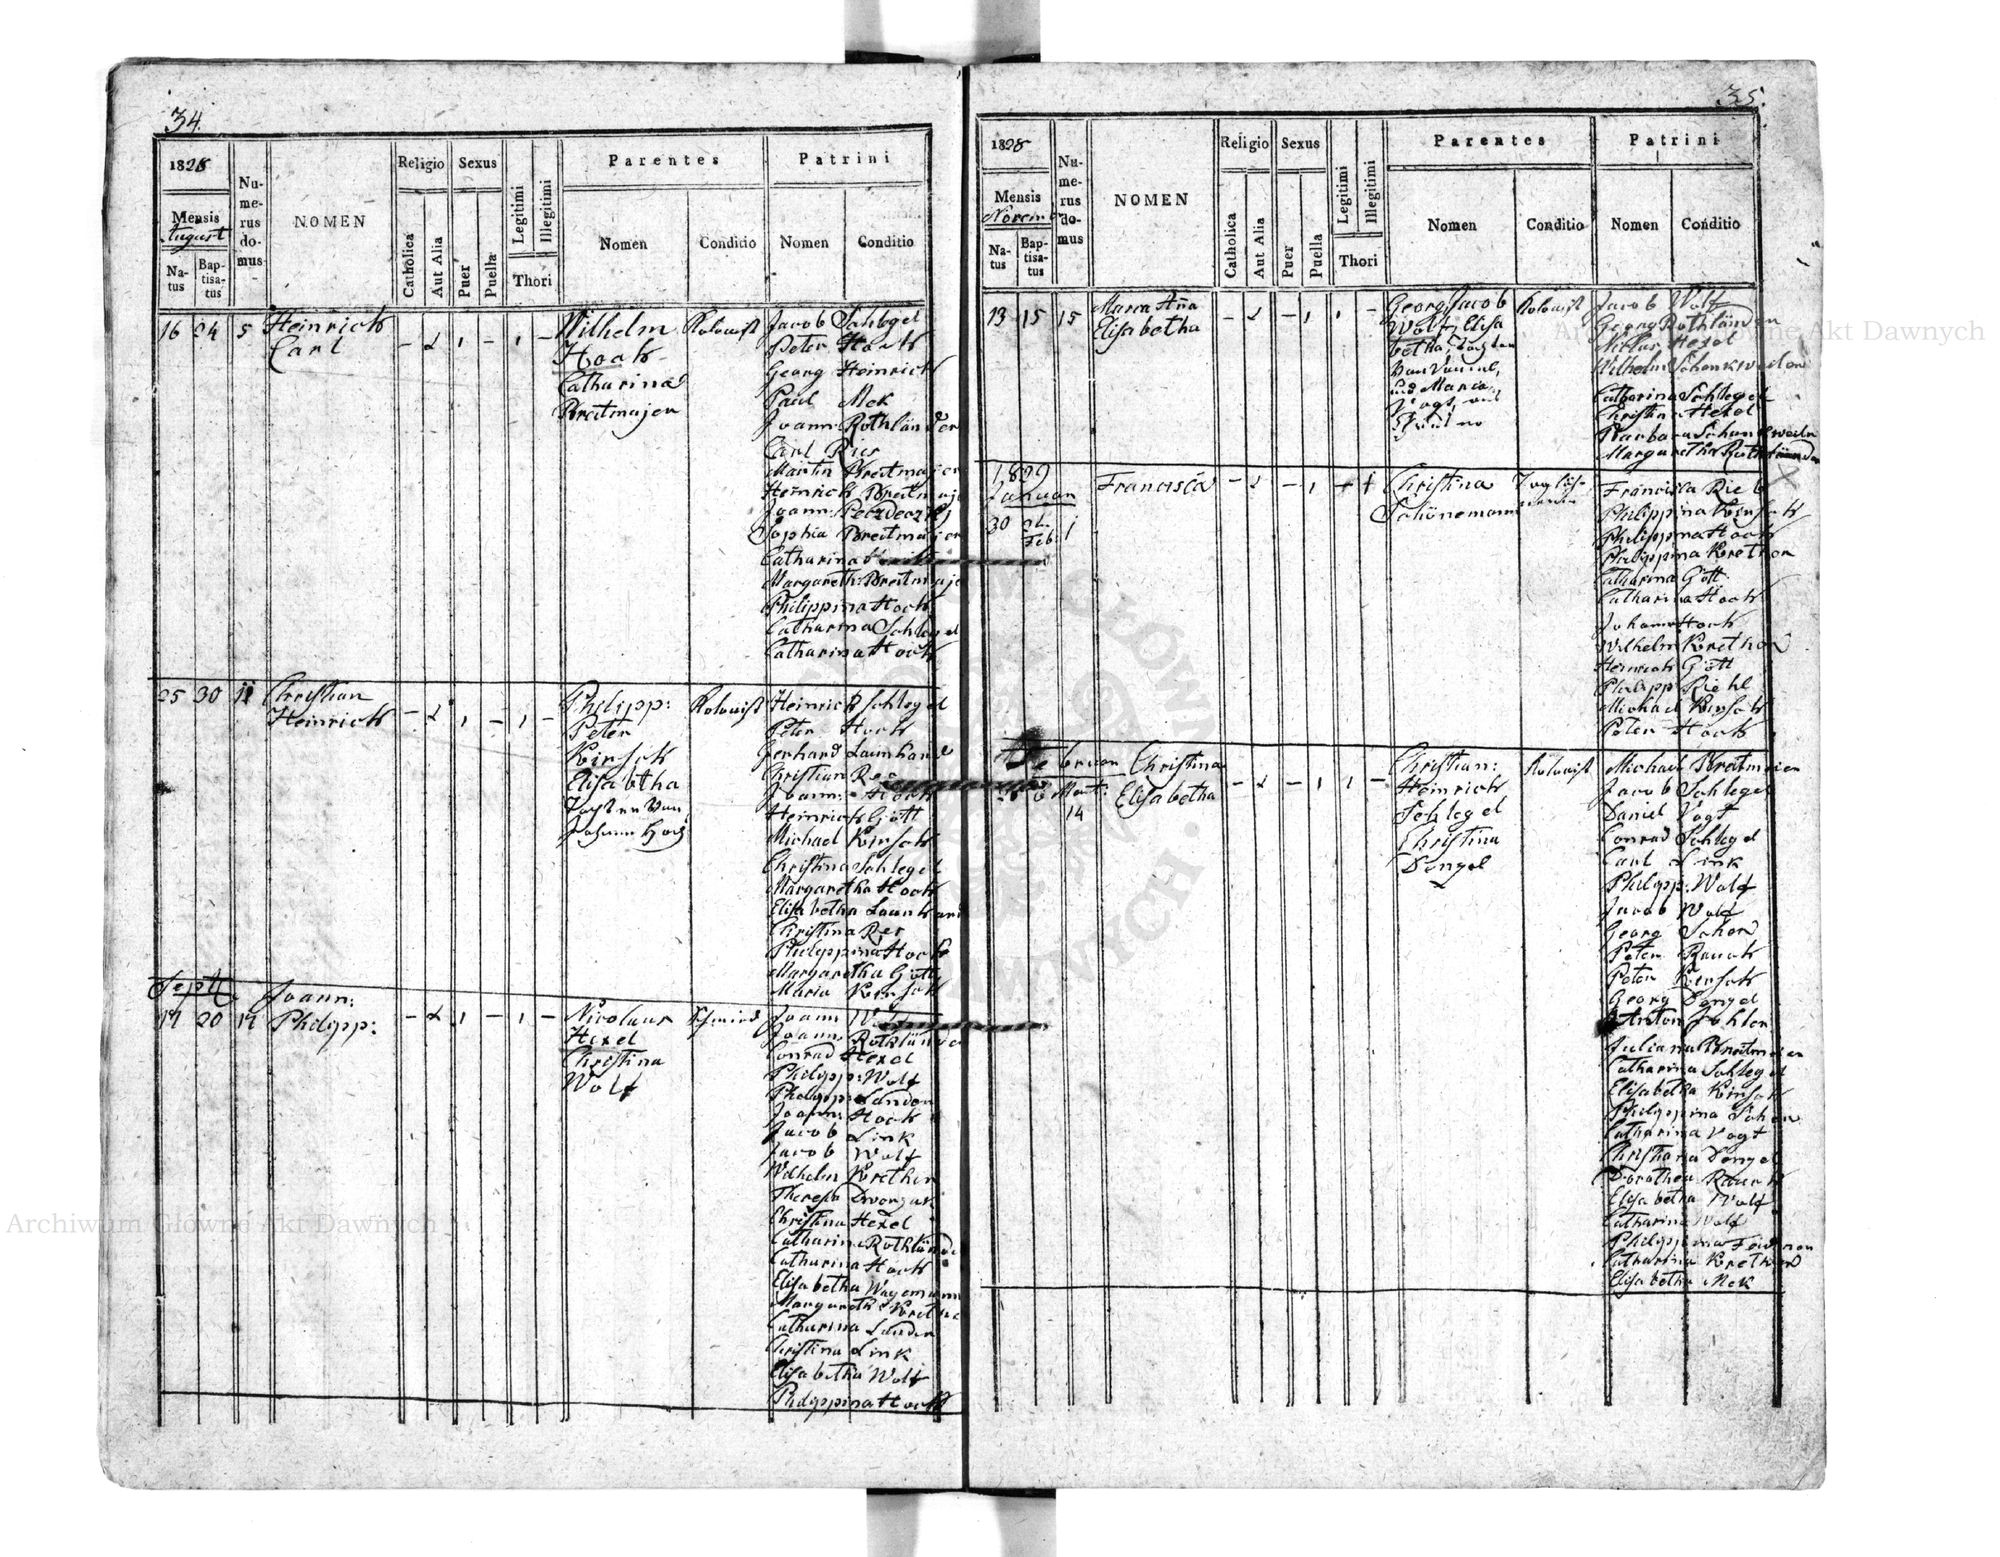 34.
1828
Mensis
August
Na-
tus
Bap-
tisa-
tus
Nu-
me-
rus
do-
mus
NOMEN
Religio
Catholica
Aut Alia
Sexus
Puer
Puella
Legitimi
Illegitimi
Thori
Parentes
Nomen
Conditio
Patrini
Nomen
Conditio
16 24 5 Heinrich
Carl
Wilhelm
Hook
Catharina
Breitmajer
Kolonist
Jacob Schlegel
Peter Hook
Georg Heinrich
Paul Mek
Joann: Rothländer
Carl Ries
Martin Breitmajer
Heinrich Breitmaje
Joann:
Sophia Breitmajer
Catharina
Margareth: Breitmaje
Philippina Hook
Catharina Schlegel
Catharina Hook
25 30 11 Christian
Heinrich
Philipp:
Peter
Kirsch
Elisabetha
Tochter von
Johann Hock
Kolonist
Heinrich Schlegel
Peter Hook
Gerhard Launhard
Christian Res
Joann: Hook
Heinrich Gött
Michael Kirsch
Christina Schlegel
Margaretha Hook
Elisabetha Launhard
Christina Res
Philippina Hook
Margaretha Gött
Maria Kirsch
Sept
17 20 17 Joann:
Philipp:
Nicolaus
Hexel
Christina
Wolf
Schmied
Joann: Wolf
Joann: Rothlände
Conrad Hexel
Philipp: Wolf
Philipp: Lander
Joann: Hook
Jacob Link
Jacob Wolf
Wilhelm Krether
Theresia Dworzak
Christina Hexel
Catharina Rothlände
Catharina Hook
Elisabetha Wagemann
Margareth: Krethe
Catharina Lander
Christina Link
Elisabetha Wolf
Philippina Hook
35.
1828
Mensis
Novemb
Na-
tus
Bap-
tisa-
tus
Nu-
me-
rus
do-
mus
NOMEN
Religio
Catholica
Aut Alia
Sexus
Puer
Puella
Legitimi
Illegitimi
Thori
Parentes
Nomen
Conditio
Patrini
Nomen
Conditio
13 15 15 Maria Aña
Elisabetha
Georg Jacob
Wolf, Elisa
betha, Tochter
und Maria
Kolonist
Jacob Wolf
Georg Rothländer
Niklas Hexel
Wilhelm Schankweiler
Catharina Schlegel
Christina Hexel
Barbara Schankweiler
Margaretha Rothländer
1829
Januar
30
Feb
Francisca
Christina
Schönemann
Francisca Rieb
Philippina Kirsch
Philippina Hook
Philippina Krether
Catharina Gött
Catharina Hook
Johann Hook
Wilhelm Krether
Heinrich Gött
Philipp Riehl
Michael Kirsch
Peter Hook
Februar
14
Christina
Elisabetha
Christian:
Heinrich
Schlegel
Christina
Dengel
Kolonist
Michael Breitmeier
Jacob Schlegel
Daniel Vogt
Conrad Schlegel
Carl Link
Philipp: Wolf
Jacob Wolf
Georg Scher
Peter Rauch
Peter Kirsch
Georg Dengel
Anton Johler
Juliana Breitmeier
Catharina Schlegel
Elisabetha Kirsch
Philippina Scher
Catharina Vogt
Christiana Dengel
Dorothea Rauch
Elisabetha Wolf
Catharina Wolf
Philippina
Catharina Krether
Elisabetha Mek
Archiwum Główne Akt Dawnych
Archiwum Główne Akt Dawnych